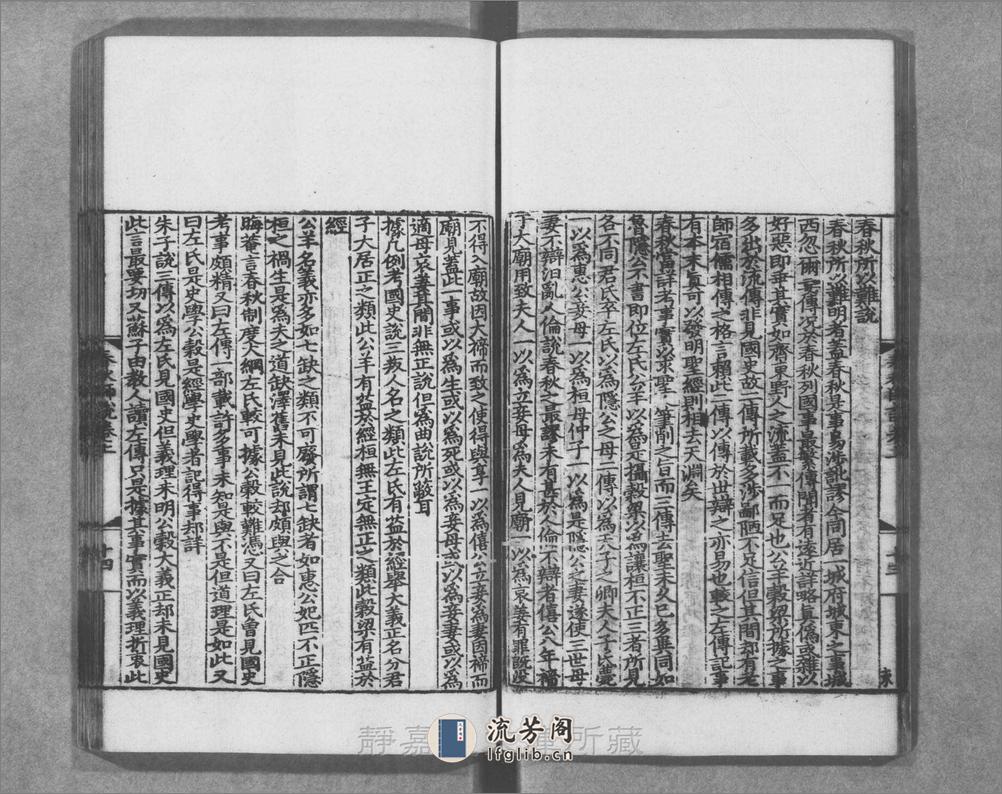 春秋所以難說
春秋所以難明者蓋春秋是事易涉訛謬今同居一城府城東之事城
西忽爾妄傳况於春秋列國事最繁傳聞者有遠近詳略真偽或雜以
好惡即乖其實如齊東野人之流蓋不一而足也公羊穀梁所據之事
多出於流傳非見國史故二傳所載多涉鄙陋不足信但其間却有老
師宿儒相傳之格言賴此二傳以傳於世辯之亦易也較之左傳記事
有本末真可以發明聖經則相去天淵矣
春秋當詳考事實以求聖人筆削之旨而三傳去聖未久已多異同如
魯隱公不書即位左氏公羊以為是攝穀梁以為讓桓不正三者所見
各不同君氏卒左氏以為隱公之母二傳以為天子之卿夫人子氏薨
一以為惠公妾母一以為桓母仲子一以為是隱公之妻遂使三世母
妻不辯汩亂人倫說春秋之最謬未有甚於人倫不辯者僖公八年禘
于大廟用致夫人一以為立妾母為夫人見廟一以為哀姜有罪既沒
不得入廟故因大禘而致之使得與享一以為僖公立妾為妻因禘而
廟見蓋此一事或以為生或以為死或以為妾母或以為妾妻或以為
適母哀姜其間非無正說但為曲說所蔽耳
據凡例考國史說三叛人名之類此左氏有益於經舉大義正名分君
子大居正之類此公羊有益於經桓無王定無正之類此穀梁有益於
經
公羊名義亦多如七缺之類不可廢所謂七缺者如惠公妃匹不正隱
桓之禍生是為夫之道缺澤舊未見此說却頗與之合
晦菴言春秋制度大綱左氏較可據公穀較難憑又曰左氏曾見國史
考事頗精又曰左傳一部載許多事未知是與不是但道理是如此又
曰左氏是史學公穀是經學史學者記得事却詳
朱子說三傳以為左氏見國史但義理未明公穀大義正却未見國史
此言最要切又蘇子由教人讀左傳只是據其事實而以義理折衷此
十四
流芳阁
lfglib.cn